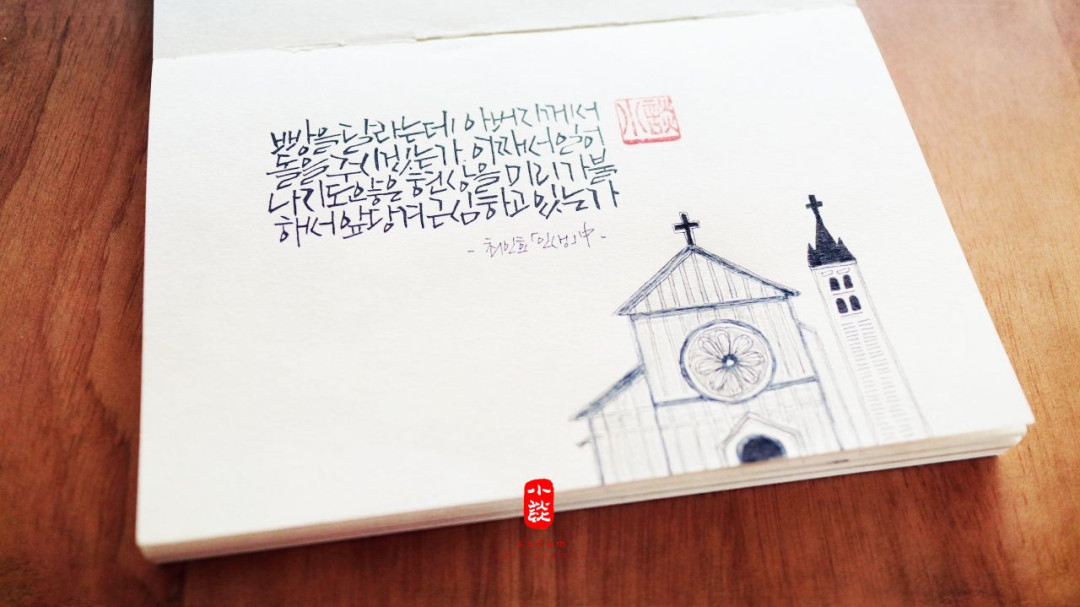 빵을 달라는데 아버지께서
돌을 주시겠는가. 어째서 일어
나지도 않은 현상을 미리 가불
해서 앞당겨 근심하고 있는가
- 최인호「인생」中 -
小談
小談